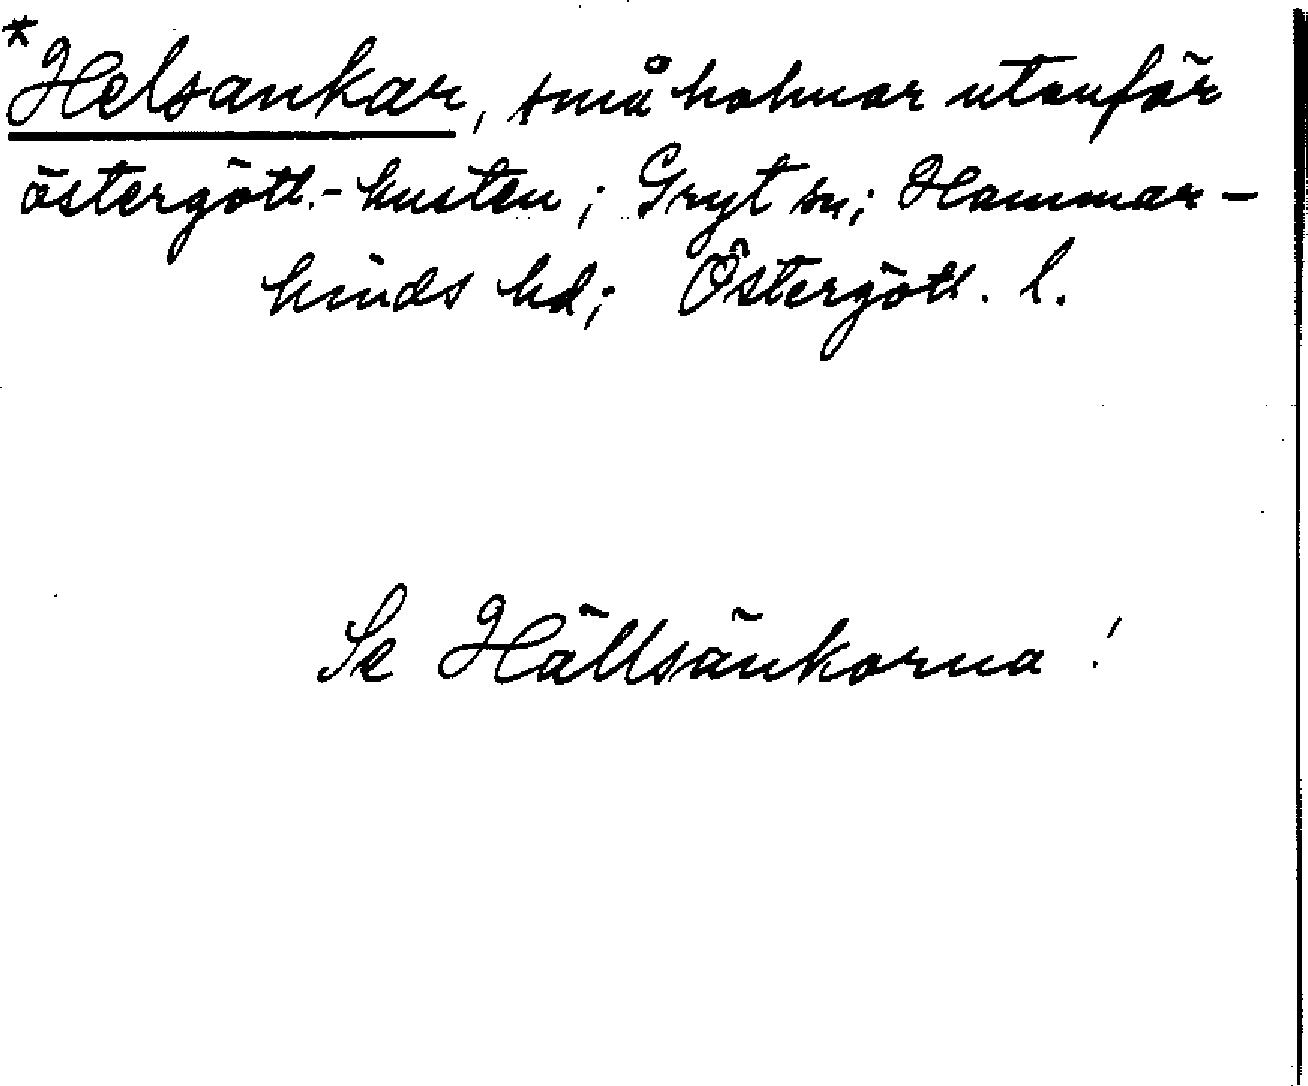 * Helsankar, små holmar utanför
östergötl.-kusten; Gryt sn; Hammar-
kinds hd; Östergötl. l.
Se Hällsänkorna!